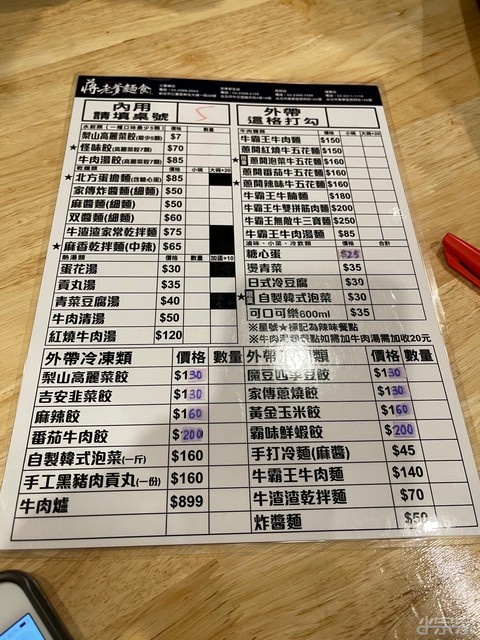 蔣老爹麵食
內用
請填桌號
5
外帶
這格打勾
水餃類(一種口味最少5顆) 價格 數量
梨山高麗菜餃(最少5顆) $7
★怪味餃(高麗菜餃7顆) $70
牛肉湯餃(高麗菜餃7顆) $85
乾麵類 價格 小碗 大碗+20
★北方蛋擔麵(含糖心蛋) $85
家傳炸醬麵(細麵) $50
麻醬麵(細麵) $50
双醬麵(細麵) $60
牛渣渣家常乾拌麵 $75
★麻香乾拌麵(中辣) $65
熱湯類 價格 數量 加蛋+10
蛋花湯 $30
貢丸湯 $35
青菜豆腐湯 $40
牛肉清湯 $50
紅燒牛肉湯 $120
牛肉麵類 價格 小碗 大碗+20
牛霸王牛肉麵 $150
蔥開紅燒牛五花麵 $150
蔥開泡菜牛五花麵 $160
蔥開番茄牛五花麵 $160
★蔥開辣味牛五花麵 $160
牛霸王牛腩麵 $180
牛霸王牛雙拼筋肉麵 $200
牛霸王無敵牛三寶麵 $250
牛霸王牛肉湯麵 $85
滷味、小菜、冷飲類 價格 合計
糖心蛋 $25
燙青菜 $35
日式冷豆腐 $30
★自製韓式泡菜 $30
可口可樂600ml $35
※星號★標記為辣味餐點
※牛肉湯類餐點如需加牛肉湯需加收20元
外帶冷凍類 價格 數量
梨山高麗菜餃 $130
吉安韭菜餃 $130
麻辣餃 $160
番茄牛肉餃 $200
自製韓式泡菜(一斤) $160
手工黑豬肉貢丸(一份) $160
牛肉爐 $899
外帶冷凍類 價格 數量
魔豆四季豆餃 $130
家傳蔥燒餃 $130
黃金玉米餃 $160
霸味鮮蝦餃 $200
手打冷麵(麻醬) $45
牛霸王牛肉麵 $140
牛渣渣乾拌麵 $70
炸醬麵 $50